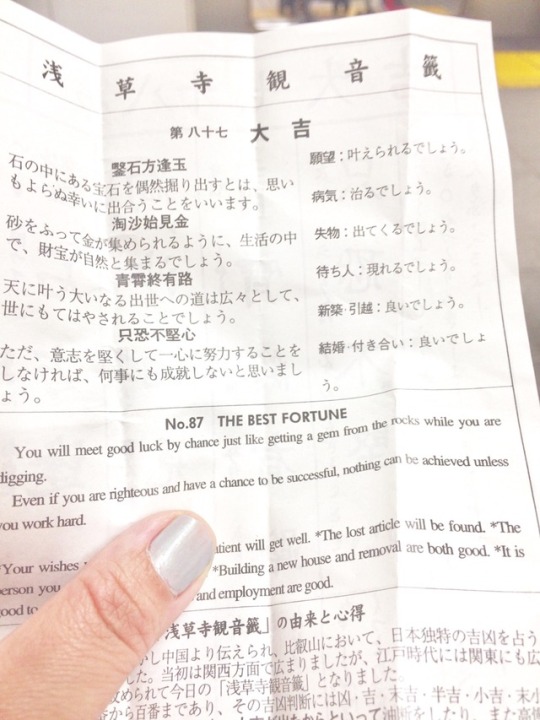 浅草寺観音籤
第八十七 大吉
鑿石方逢玉
石の中にある宝石を偶然掘り出すとは、思い
もよらぬ幸いに出合うことをいいます。
淘沙始見金
砂をふって金が集められるように、生活の中
で、財宝が自然と集まるでしょう。
青霄終有路
天に叶う大いなる出世への道は広々として、
世にもてはやされることでしょう。
只恐不堅心
ただ、意志を堅くして一心に努力することを
しなければ、何事にも成就しないと思いまし
ょう。
願望：叶えられるでしょう。
病気：治るでしょう。
失物：出てくるでしょう。
待ち人：現れるでしょう。
新築・引越：良いでしょう。
結婚・付き合い：良いでしょ
う。
No.87 THE BEST FORTUNE
You will meet good luck by chance just like getting a gem from the rocks while you are
digging.
Even if you are righteous and have a chance to be successful, nothing can be achieved unless
you work hard.
*Your wishes will get well. *The lost article will be found. *The
person you *Building a new house and removal are both good. *It is
good to and employment are good.
浅草寺観音籤」の由来と心得
し中国より伝えられ、比叡山において、日本独特の吉凶を占う
した。当初は関西方面で広まりましたが、江戸時代には関東にも広
改められて今日の「浅草寺観音籤」となりました。
から百番まであり、その吉凶判断には凶・吉・末吉・半吉・小吉・末小